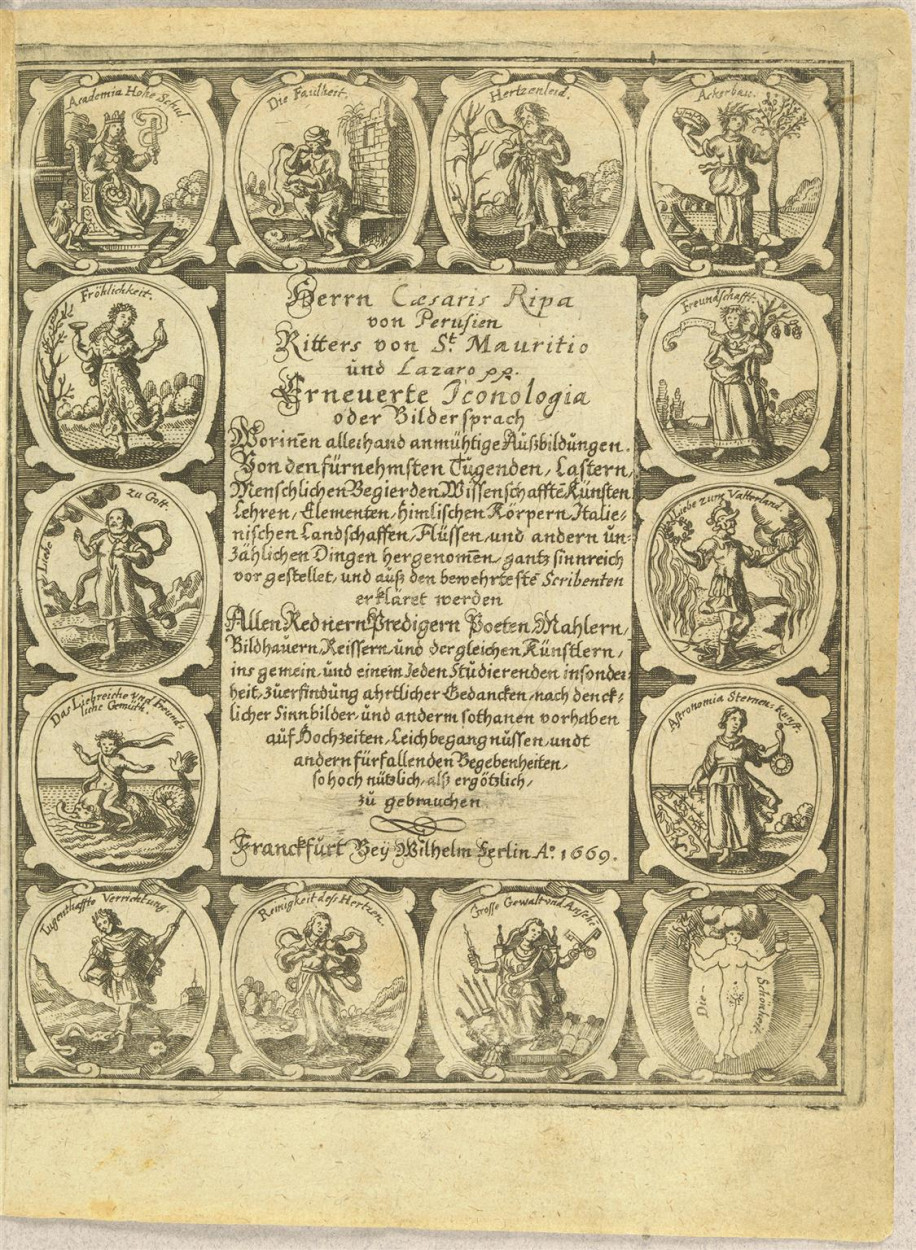 Academia Hohe Schul
Die Faulheit.
Hertzenleid.
Ackerbau.
Fröhlichkeit.
Freundschafft.
Liebe zu Gott.
Liebe zum Vatterland.
Das Liebreiche und Freund-
liche Gemüth.
Astronomia Sternen-Kunst.
Herrn Cæsaris Ripa
von Perusien
Ritters von St. Mauritio
und Lazaro pp.
Erneuerte Iconologia
oder Bildersprach
Worinen allerhand anmühtige Außbildungen.
Von den fürnehmsten Tugenden, Lastern,
Menschlichen Begierden Wissenschaffte Künsten
Lehren, Elementen, himlischen Körpern Italie-
nischen Landschaffen, Flüssen, und andern un-
zählichen Dingen hergenomen, gantz sinnreich
vorgestellet, und auß den bewehrtesten Scribenten
erkläret werden
Allen Rednern Predigern Poeten, Mahlern,
Bildhauern, Reissern, und dergleichen Künstlern,
ins gemein, und einem Jeden Studierenden insonder-
heit, zu erfindung ahrtlicher Gedancken, nach denck-
licher Sinnbilder, und anderm sothanen vorhaben
auf Hochzeiten, Leichbegangnüssen, undt
andern fürfallenden Begebenheiten,
so hoch nützlich, alß ergötzlich,
zu gebrauchen
Franckfurt Bey Wilhelm Serlin Ao. 1669.
Tugenthaffte Verrichtung
Reinigkeit deß Hertzen.
Grosse Gewalt und Ansehe
Die-Schönheit.